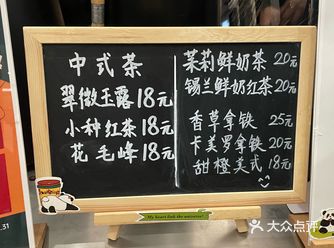 中式茶
翠微玉露18元
小种红茶18元
花毛峰18元
茉莉鲜奶茶20元
锡兰鲜奶红茶20元
香草拿铁 25元
卡美罗拿铁 20元
甜橙美式 18元
My heart link the universe!
大众点评
31